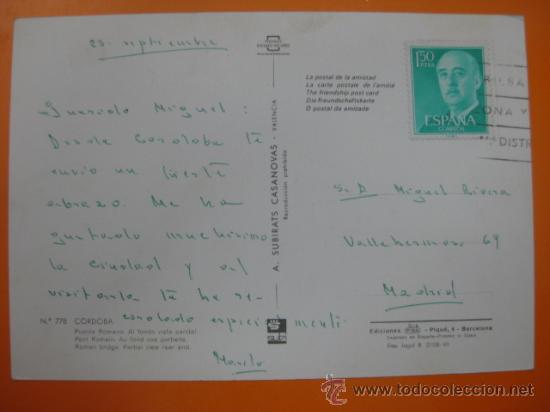 25 septiembre
Querido Miguel:
Desde Córdoba te
envio un fuerte
abrazo. Me ha
gustado muchisimo
la ciudad y al
visitarla te he re-
cordado especialmente
A. SUBIRATS CASANOVAS - VALENCIA
Reproducción prohibida
N.º 778 CORDOBA
Puente Romano. Al fondo vista parcial
Pont Romain. Au fond vue partielle
Roman bridge. Partial view rear end.
La postal de la amistad
La carte postale de l'amitié
The friendship post card
Die freundschaftskarte
O postal da amizade
1'50
PTAS
ESPAÑA
CORREOS
ONA
DISTR
Sr. D. Miguel Rivera
Vallehermoso 69
Madrid
Ediciones - Piqué, 4 - Barcelona
todocoleccion.net